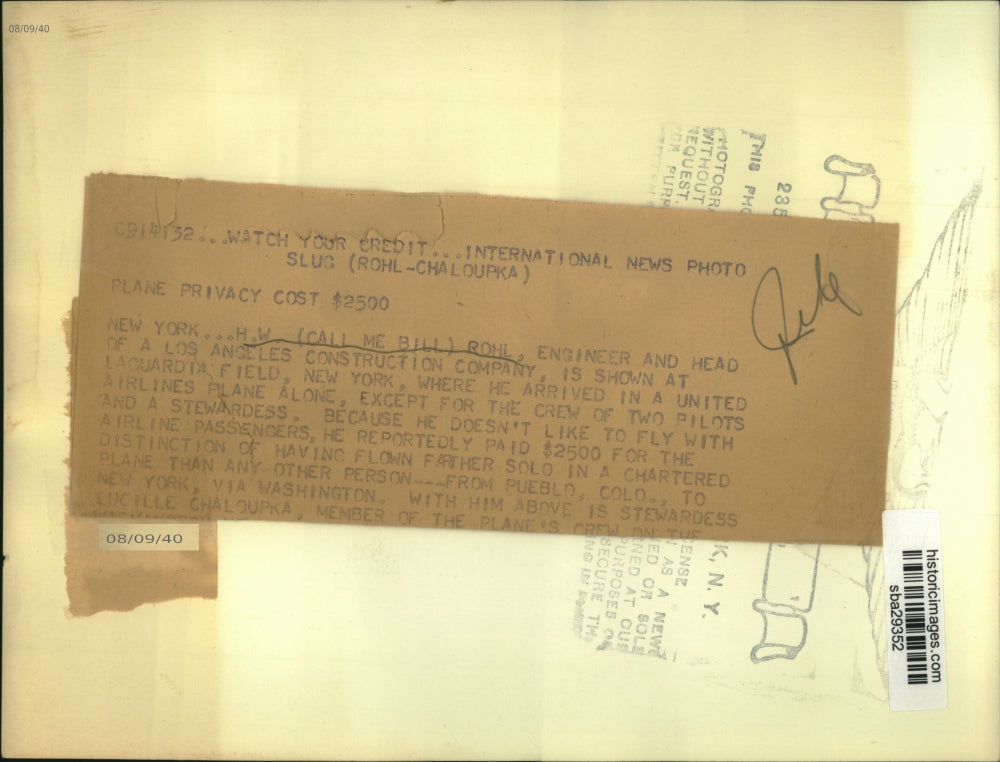 08/09/40
C914132...WATCH YOUR CREDIT...INTERNATIONAL NEWS PHOTO
SLUG (ROHL-CHALOUPKA)
PLANE PRIVACY COST $2500
NEW YORK...H.W. (CALL ME BILL) ROHL, ENGINEER AND HEAD
OF A LOS ANGELES CONSTRUCTION COMPANY, IS SHOWN AT
LAGUARDIA FIELD, NEW YORK, WHERE HE ARRIVED IN A UNITED
AIRLINES PLANE ALONE, EXCEPT FOR THE CREW OF TWO PILOTS
AND A STEWARDESS. BECAUSE HE DOESN'T LIKE TO FLY WITH
AIRLINE PASSENGERS, HE REPORTEDLY PAID $2500 FOR THE
DISTINCTION OF HAVING FLOWN FARTHER SOLO IN A CHARTERED
PLANE THAN ANY OTHER PERSON---FROM PUEBLO, COLO., TO
NEW YORK, VIA WASHINGTON. WITH HIM ABOVE IS STEWARDESS
LUCILLE CHALOUPKA, MEMBER OF THE PLANE'S CREW ON THE
08/09/40
THIS PHO
PHOTOGR
WITHOUT
REQUEST.
235
K, N. Y.
CENSE
N AS A NEW
NED OR SOL
RNED AT OUR
PURPOSES OR
SECURE
historicimages.com
sba29352